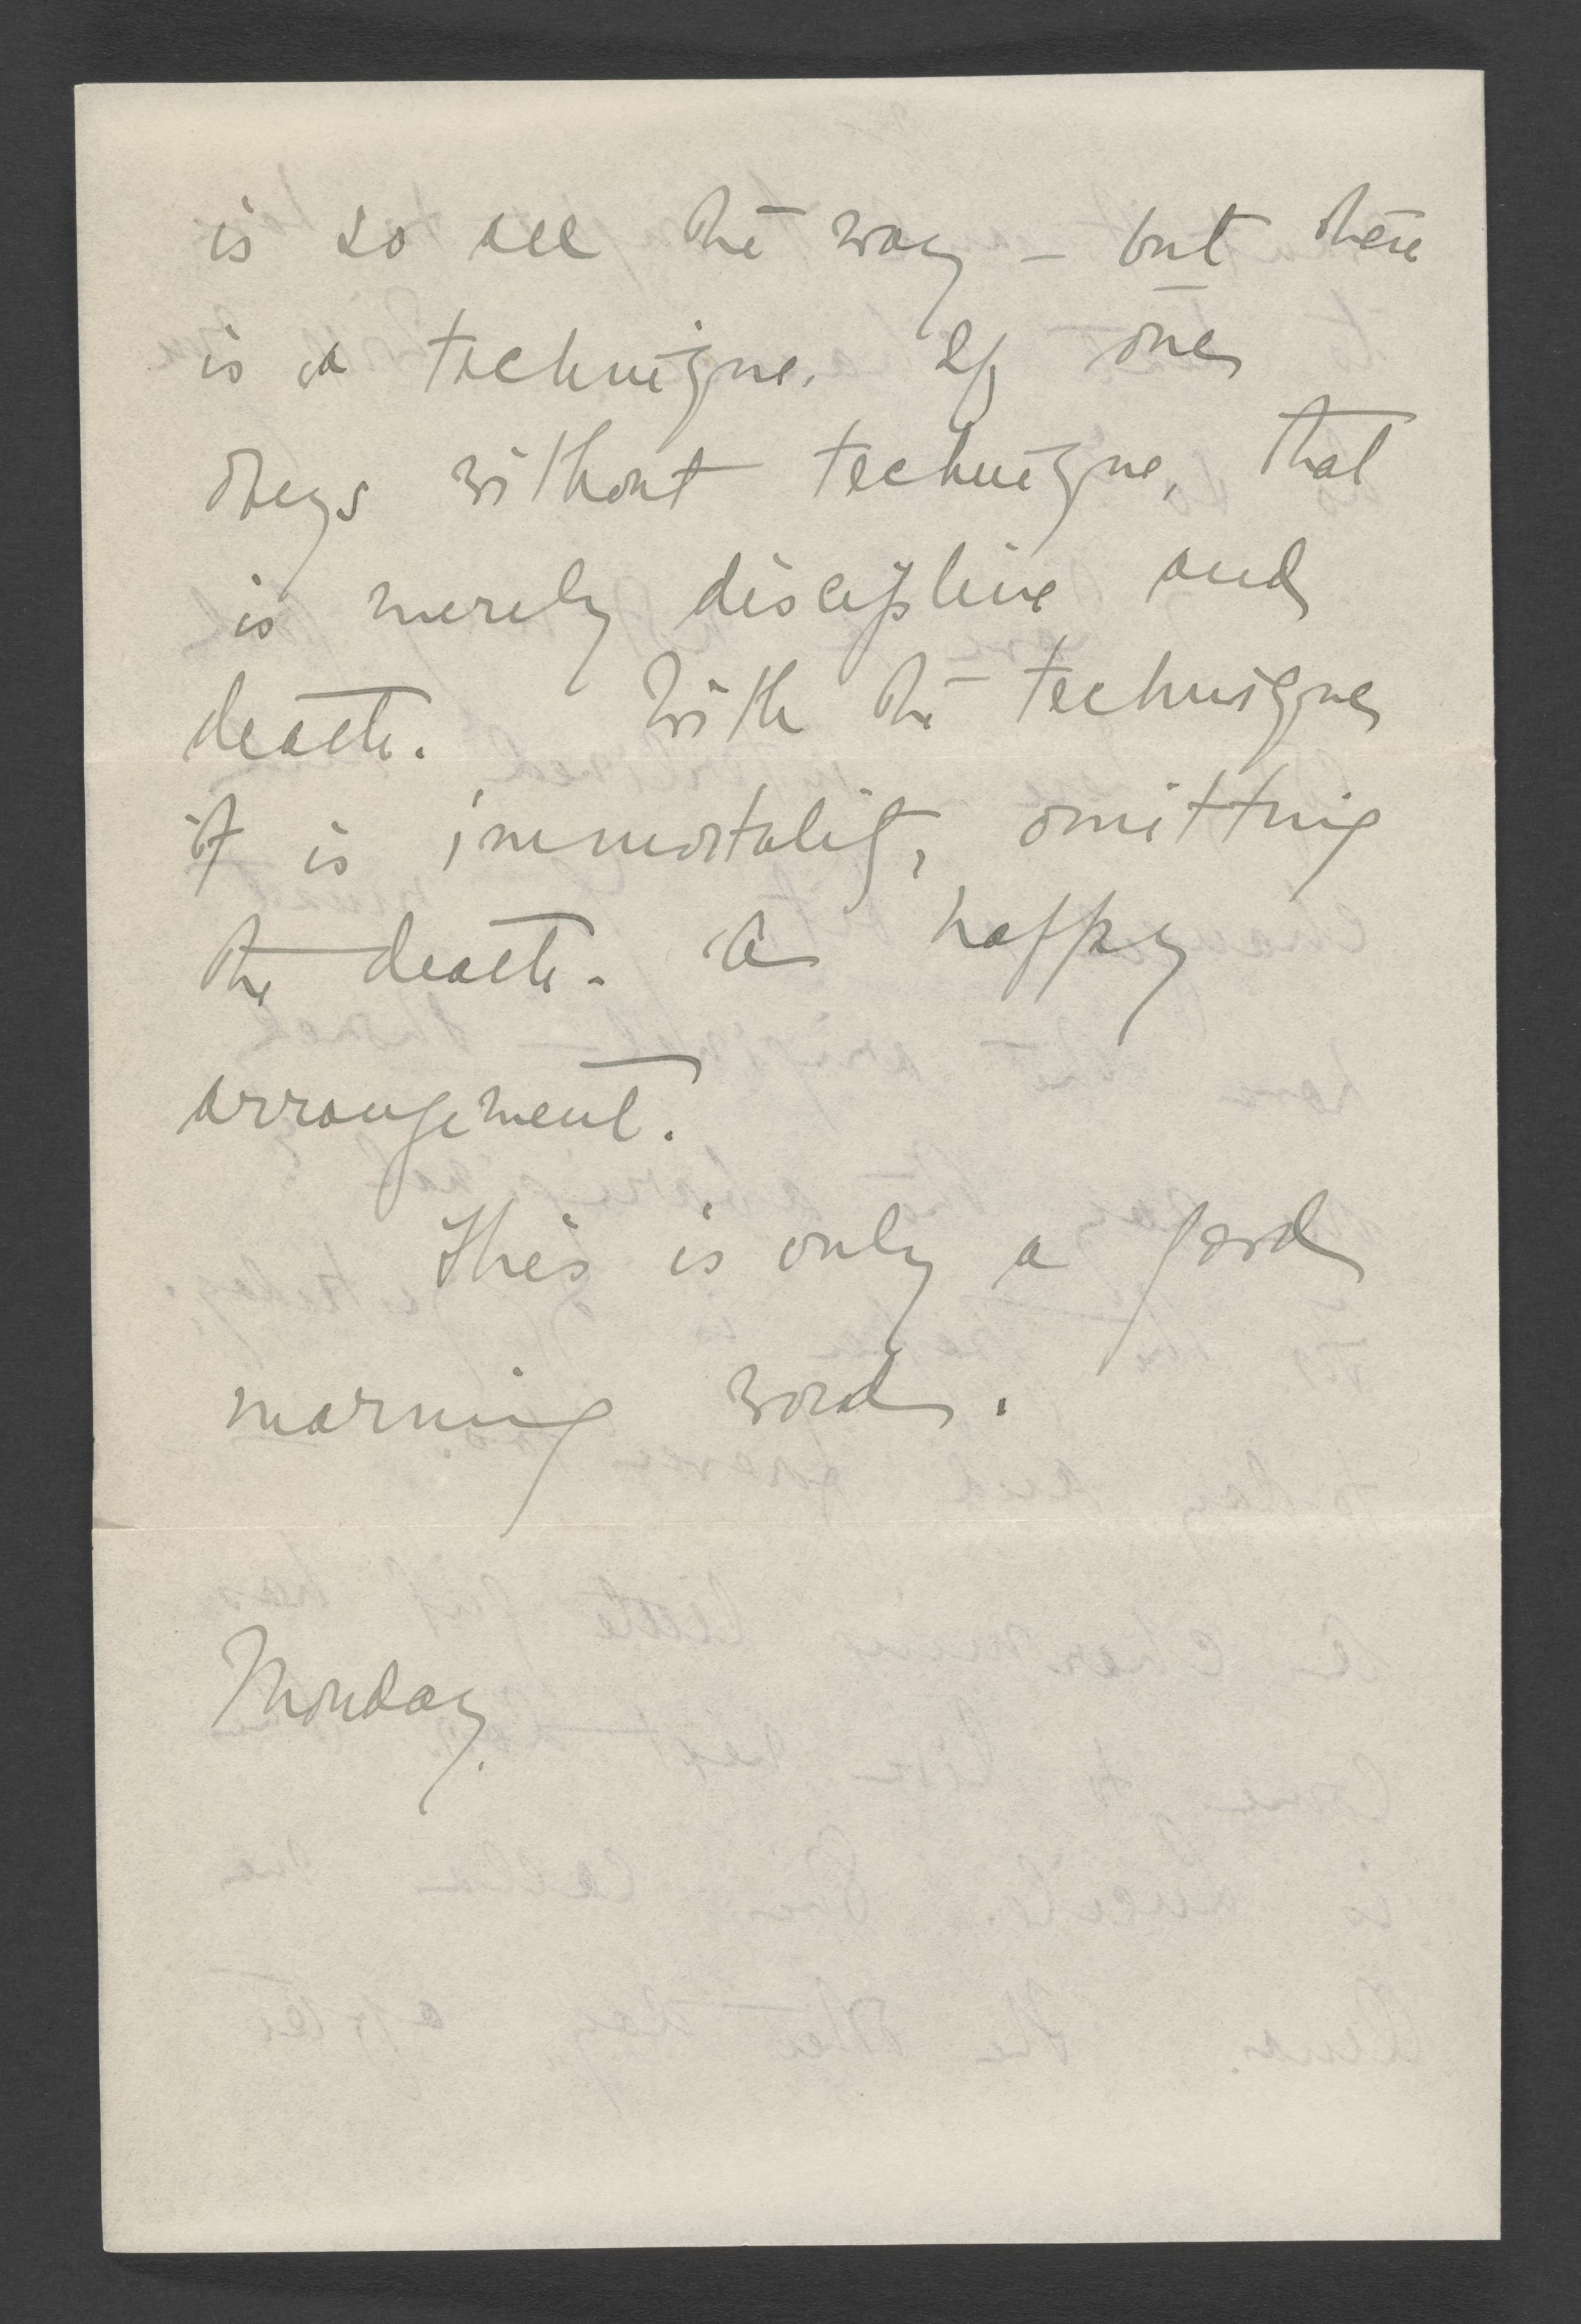 is so all the way – but there
is a technique. If one
obeys without technique, that
is merely discipline and
death. With the technique
it is immortality, omitting
the death. A happy
arrangement.
This is only a good
morning word.
Monday.